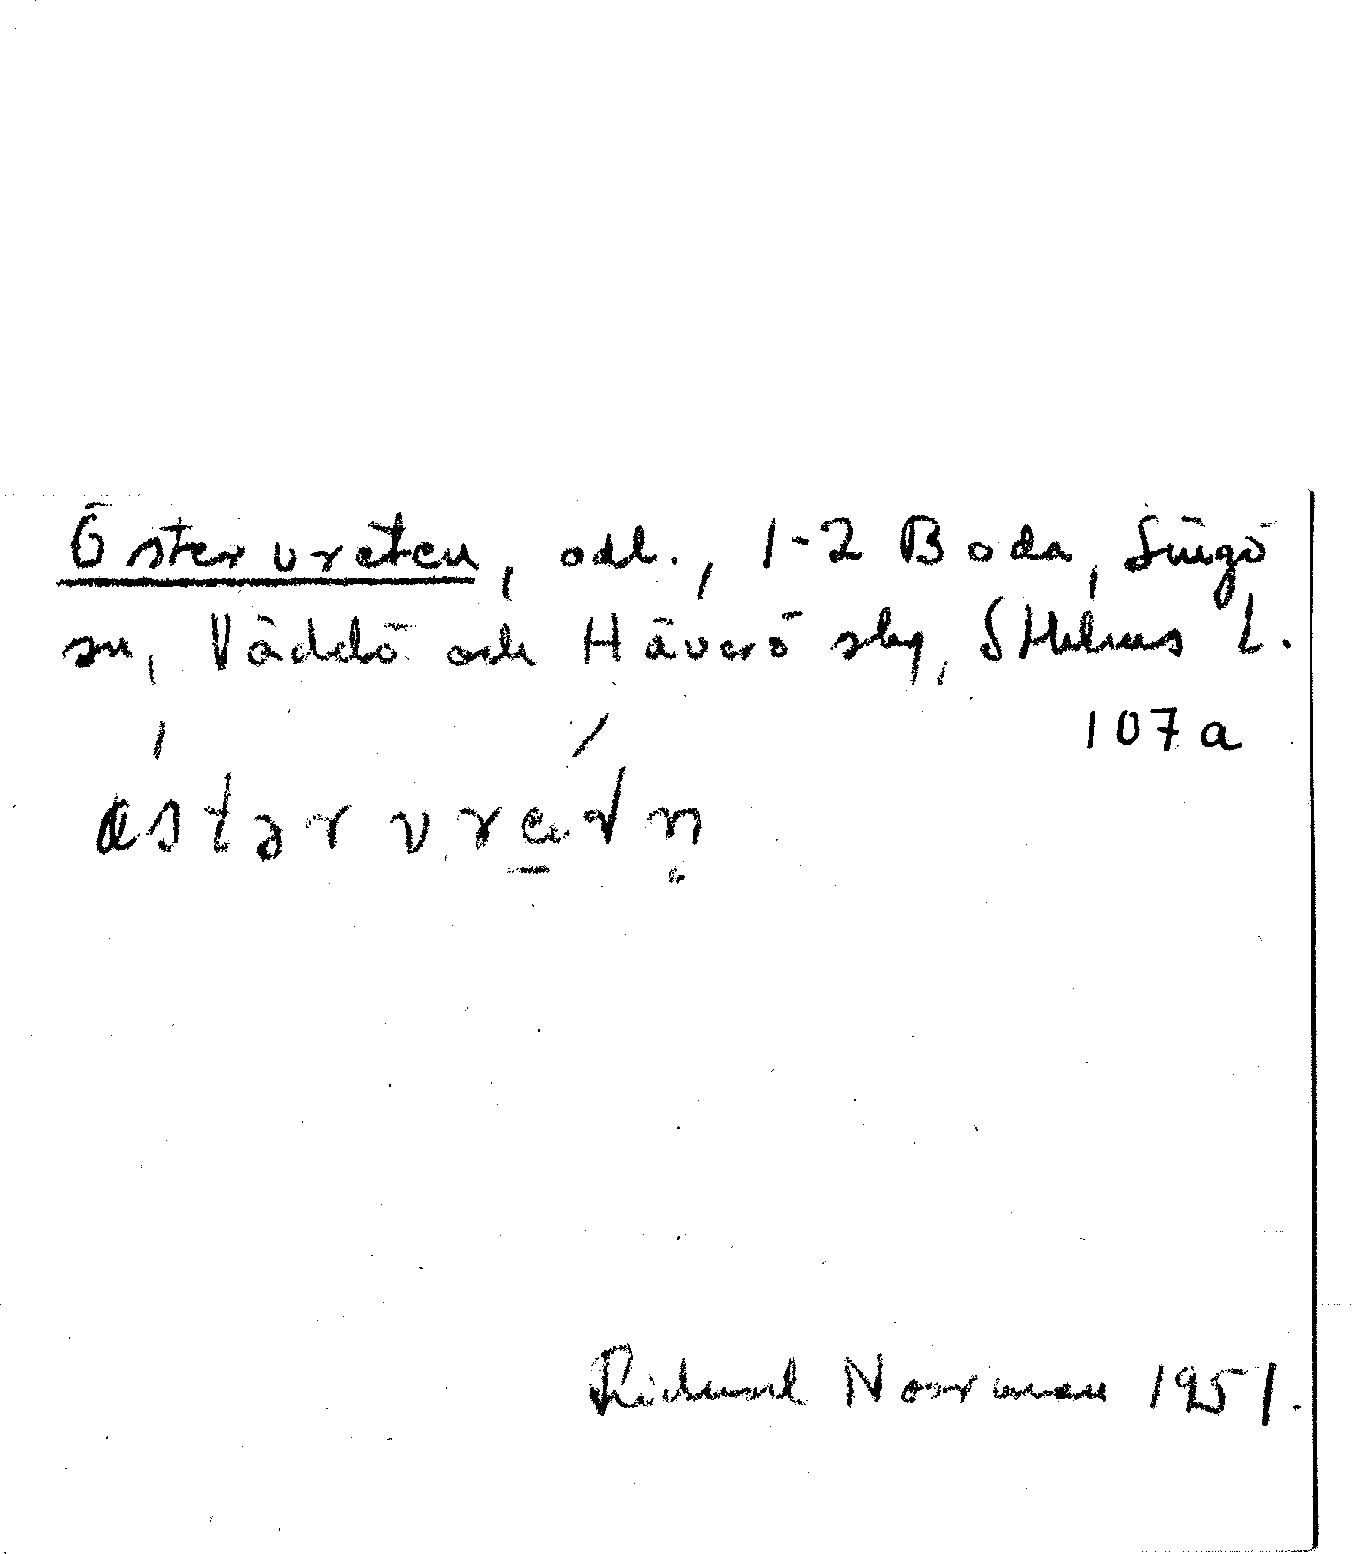 Östervreten, odl., 1-2 Boda, Singö
sn, Väddö och Häverö skg, Sthlms L.
107a
østər vre̱tn̥
Richard Norrman 1951.